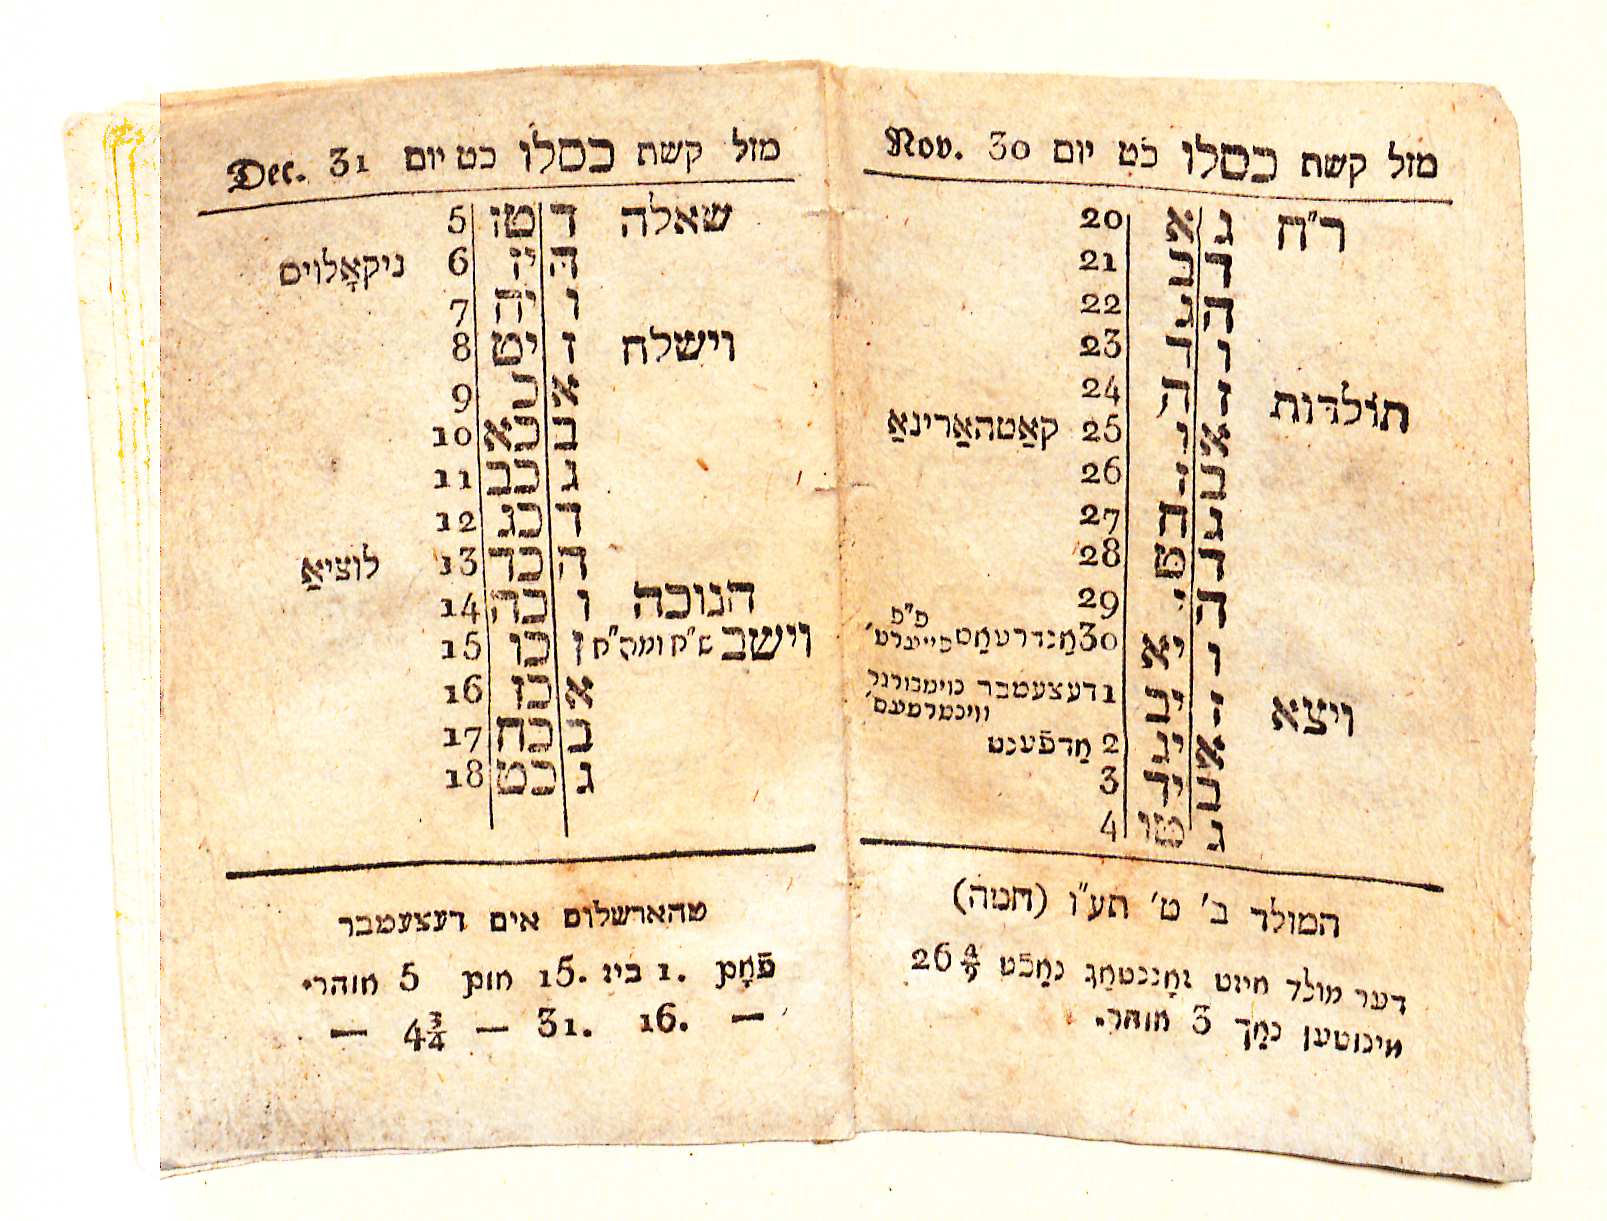 מזל קשת כסלו כט יום Nov. 30
ר"ח ג א 20
ד ב 21
ה ג 22
ו ד 23
תולדות ז ה 24
א ו 25 קאַטהאַרינאַ
ב ז 26
ג ח 27
ד ט 28
ה י 29
פ"פ
ו יא 30 אַנדרעאַס פייערט׳
ויצא ז יב 1 דעצעמבר נוימבורגר
ווינטרמעס׳
א יג 2 אַדפֿענט
ב יד 3
ג טו 4
המולד ב׳ ט׳ תע"ו (חמה)
דער מולד איזט זאָננטאַג נאַכֿט 26 4/9
מינוטען נאַך 3 אוהר.
מזל קשת כסלו כט יום Dec. 31
שאלה ד טז 5
ה יז 6 ניקאָלויס
ו יח 7
וישלח ז יט 8
א כ 9
ב כא 10
ג כב 11
ד כג 12
ה כד 13 לוציאַ
חנוכה ו כה 14
וישב ש"ח ומה"ח ז כו 15
א כז 16
ב כח 17
ג כט 18
טהארשלוס אים דעצעמבר
פֿאָם 1. ביז 15. אום 5 אוהר.
— 16. 31. — 4 3/4 —